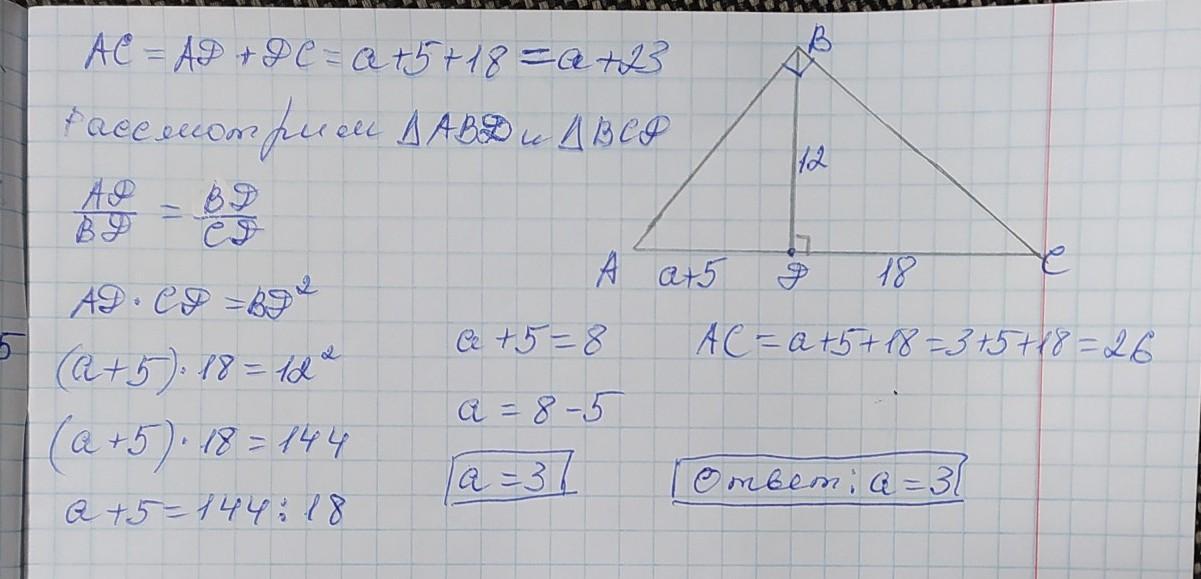 AC = AD + DC = a+5+18 = a+23
Рассмотрим ΔABD и ΔBCD
AD/BD = BD/CD
AD · CD = BD²
(a+5) · 18 = 12²
(a+5) · 18 = 144
a+5 = 144 : 18
a+5 = 8
a = 8-5
a = 3
B
12
A
a+5
D
18
C
AC = a+5+18 = 3+5+18 = 26
Ответ: a = 3
5